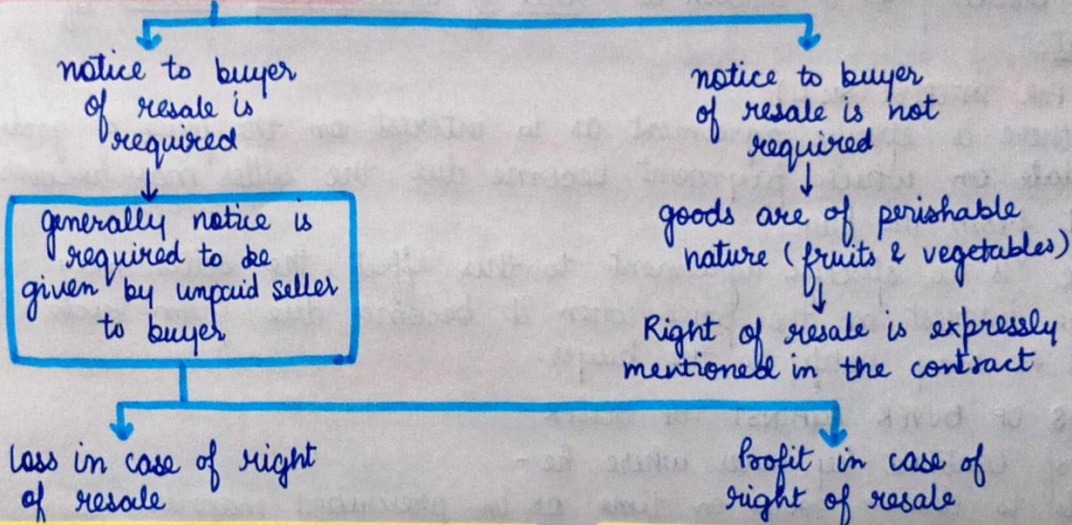 notice to buyer
of resale is
required
generally notice is
required to be
given by unpaid seller
to buyer
notice to buyer
of resale is not
required
goods are of perishable
nature (fruits & vegetables)
Right of resale is expressly
mentioned in the contract
Loss in case of right
of resale
Profit in case of
right of resale